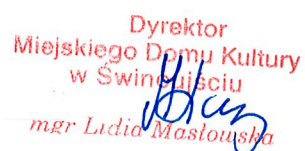 Dyrektor
Miejskiego Domu Kultury
w Świnoujściu
mgr Lidia Masłowska